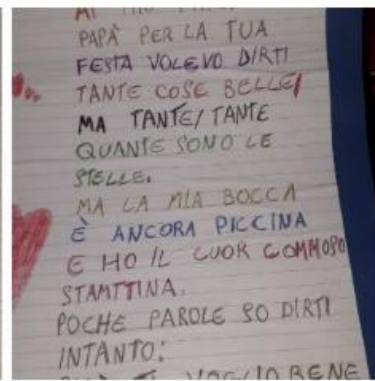 PAPÀ PER LA TUA
FESTA VOLEVO DIRTI
TANTE COSE BELLE/
MA TANTE/TANTE
QUANTE SONO LE
STELLE.
MA LA MIA BOCCA
È ANCORA PICCINA
E HO IL CUOR COMMOSO
STAMTTINA.
POCHE PAROLE SO DIRTI
INTANTO:
VOGLIO BENE